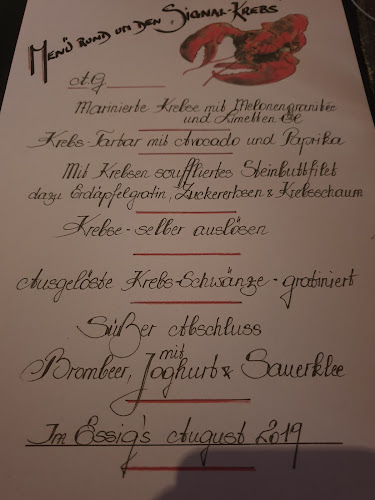 Menü rund um den „Signal-Krebs"
A.G.
Marinierte Krebse mit Melonengranitée
und Limetten Gé
Krebs-Tartar mit Avocado und Paprika
Mit Krebsen souffliertes Steinbuttfilet
dazu Erdäpfelgratin, Zuckererbsen & Krebsschaum
Krebse - selber auslösen
Ausgelöste Krebs-Schwänze - gratiniert
Süßer Abschluss
mit
Brombeer, Joghurt & Sauerklee
Im Essig's August 2019